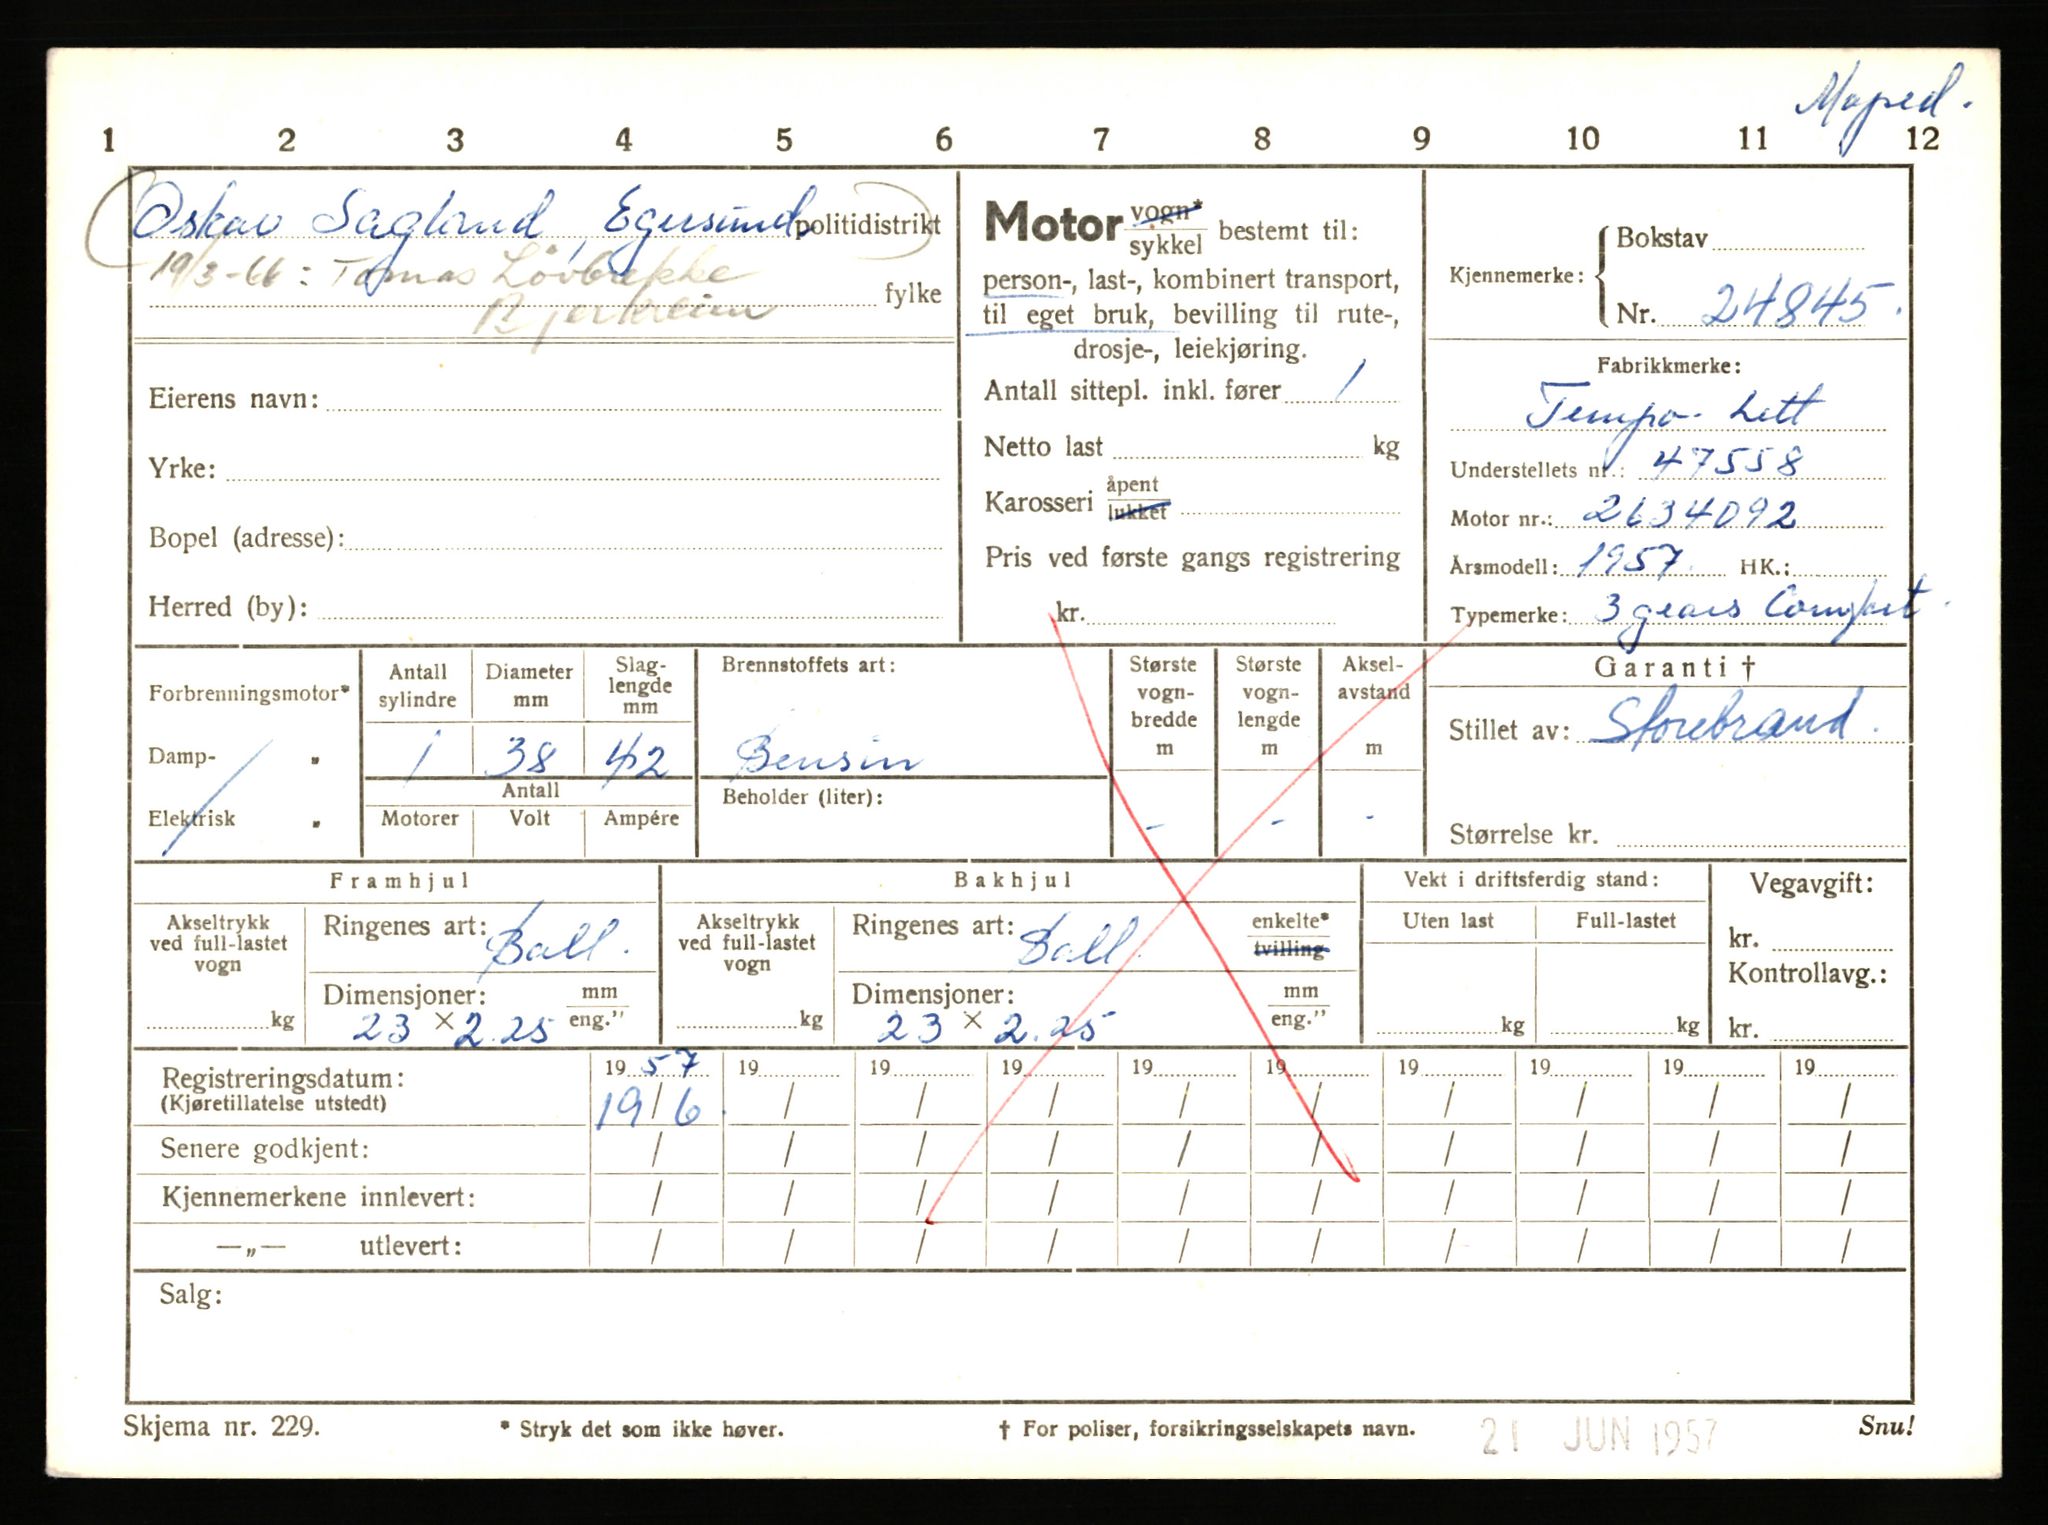 Moped.
1 2 3 4 5 6 7 8 9 10 11 12
Oskar Sagland, Egersund. politidistrikt
19/3-66: Tomas Lövbrekke
Bjerkreim
fylke
Eierens navn:
Yrke:
Bopel (adresse):
Herred (by):
Motor vogn* sykkel bestemt til:
person-, last-, kombinert transport,
til eget bruk, bevilling til rute-,
drosje-, leiekjøring.
Antall sittepl. inkl. fører 1
Netto last kg
Karosseri åpent lukket
Pris ved første gangs registrering
kr.
Kjennemerke: Bokstav
Nr. 24845.
Fabrikkmerke:
Tempo- Lett
Understellets nr.: 47558
Motor nr.: 2634092
Årsmodell: 1957. HK.:
Typemerke: 3 gears Comfort.
Forbrenningsmotor*
Damp- „
Elektrisk „
Antall sylindre
Diameter mm
Slag-lengde mm
1 38 42
Antall
Motorer Volt Ampére
Brennstoffets art:
Bensin
Beholder (liter):
Største vogn-bredde m
-
Største vogn-lengde m
-
Aksel-avstand m
-
Garanti †
Stillet av: Storebrand.
Størrelse kr.
Framhjul
Akseltrykk ved full-lastet vogn
kg
Ringenes art: Ball.
Dimensjoner: mm eng.”
23 × 2.25
Bakhjul
Akseltrykk ved full-lastet vogn
kg
Ringenes art: Ball. enkelte* tvilling
Dimensjoner: mm eng.”
23 × 2.25
Vekt i driftsferdig stand:
Uten last Full-lastet
kg kg
Vegavgift:
kr.
Kontrollavg.:
kr.
1957 19 19 19 19 19 19 19 19 19
Registreringsdatum: 19/6. / / / / / / / / /
(Kjøretillatelse utstedt)
Senere godkjent: / / / / / / / / / /
Kjennemerkene innlevert: / / / / / / / / / /
—„— utlevert: / / / / / / / / / /
Salg:
Skjema nr. 229. * Stryk det som ikke høver. † For poliser, forsikringsselskapets navn. 21 JUN 1957 Snu!